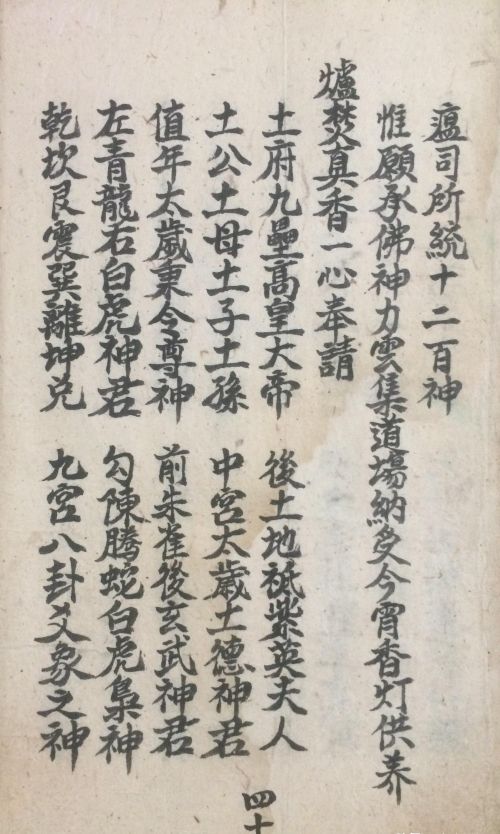 瘟司所統十二百神
惟願承佛神力雲集道場納受今宵香灯供养
爐焚真香一心奉請
土府九壘高皇大帝 後土地祇紫英夫人
土公土母土子土孫 中宮太歲土德神君
值年太歲秉令尊神 前朱雀後玄武神君
左青龍右白虎神君 勾陳腾蛇白虎梟神
乾坎艮震巽離坤兑 九宮八卦爻象之神
四十